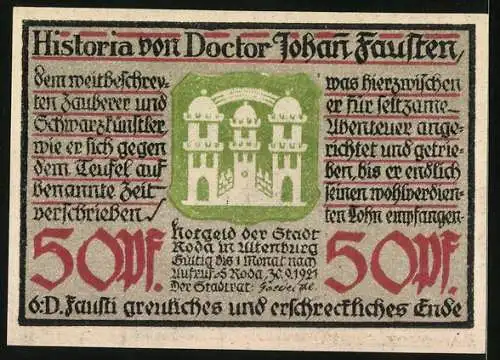 Historia von Doctor Johañ Fausten,
dem weitbeschrey-
ten Zauberer und
Schwarzkünstler,
wie er sich gegen
dem Teufel auf
benannte Zeit
verschrieben
was hierzwischen
er für seltzame
Abenteuer ange-
richtet und getrie-
ben, bis er endlich
seinen wohlverdien-
ten Lohn empfangen.
50 Pf.
Notgeld der Stadt
Roda in Altenburg
Gültig bis 1 Monat nach
Aufruf. S. Roda, 30.9.1921
Der Stadtrat:
50 Pf.
6: D. Fausti greuliches und erschreckliches Ende